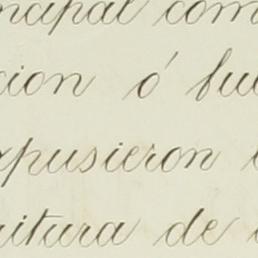 ncipal com
cion ó fu
xpusieron
uitura de